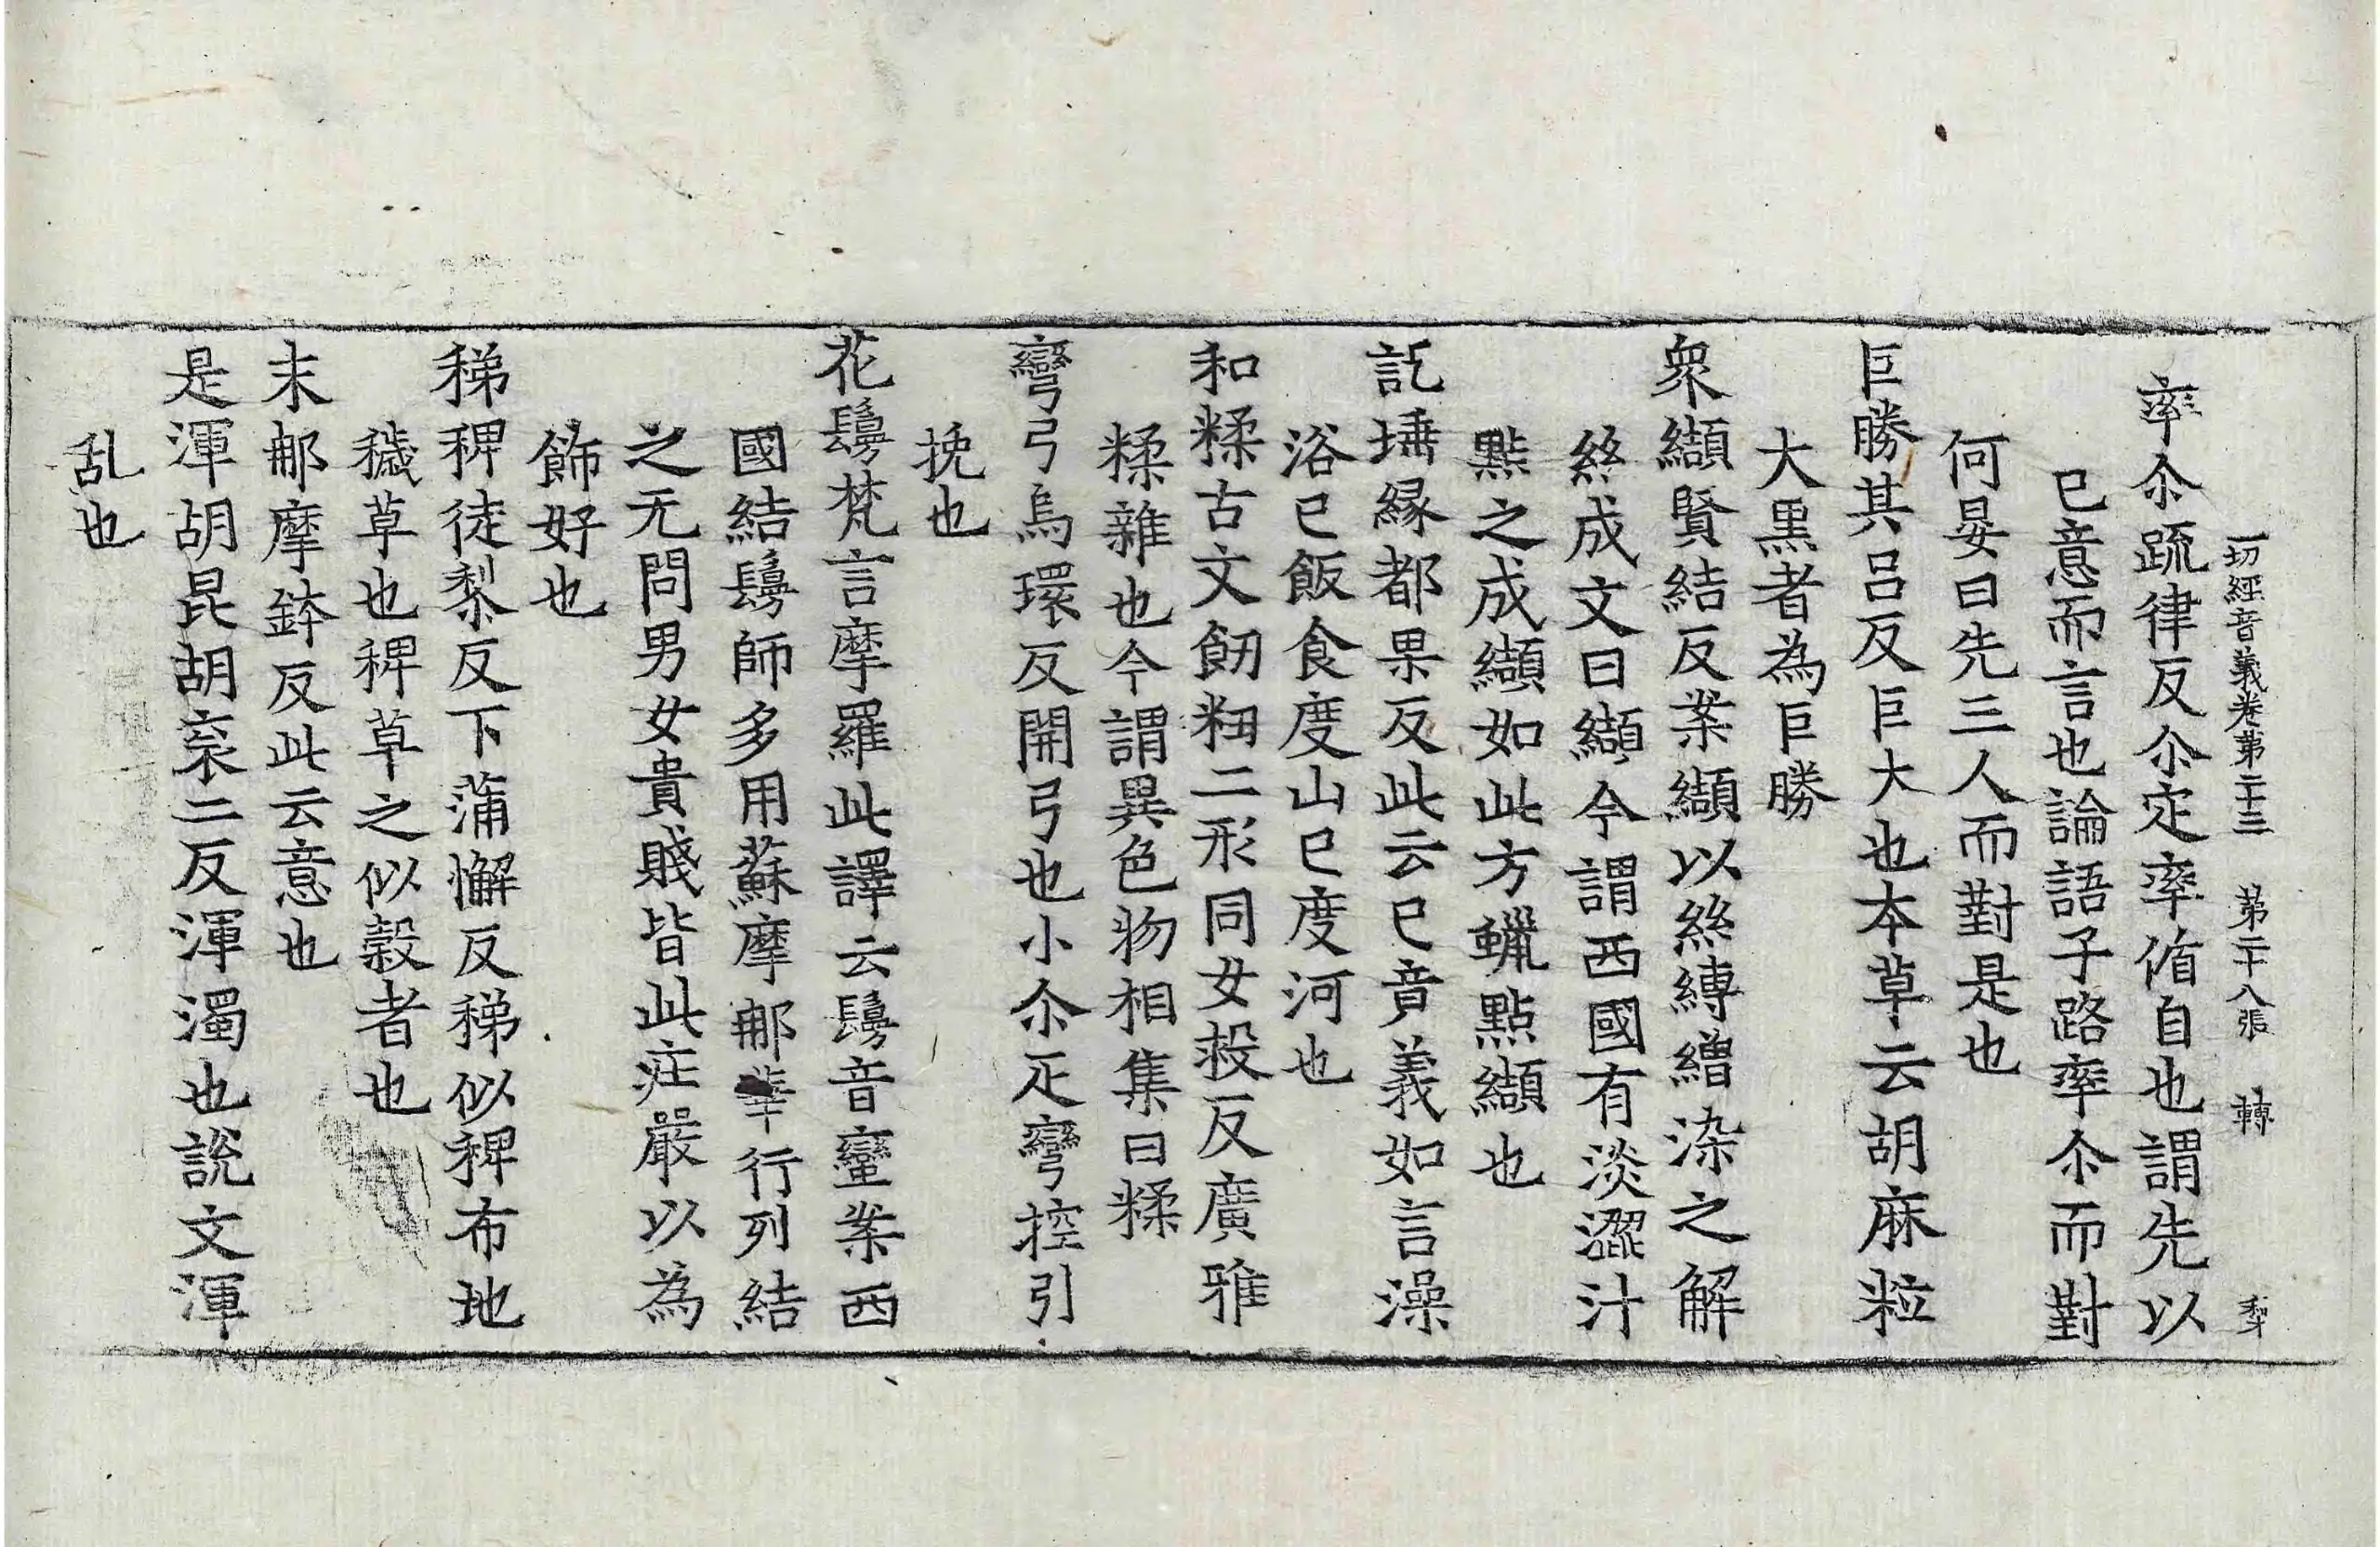 一切經音義卷第二十三　第二十八張　轉
率尒疏律反尒定率循自也謂先以
已意而言也論語子路率尒而對
何晏曰先三人而對是也
巨勝其呂反巨大也本草云胡麻粒
大黒者為巨勝
衆纈賢結反案纈以絲縛繒染之解
絲成文曰纈今謂西國有淡澀汁
點之成纈如此方蠟點纈也
託埵緣都果反此云已音義如言澡
浴已飯食度山已度河也
和糅古文飷粈二形同女救反廣雅
糅雜也今謂異色物相集曰糅
彎弓烏環反開弓也小尒疋彎控引
挽也
花鬘梵言摩羅此譯云鬘音蠻案西
國結鬘師多用蘇摩那華行列結
之无問男女貴賤皆此庄嚴以為
飾好也
稊稗徒黎反下蒲懈反稊似稗布地
穢草也稗草之似穀者也
末那摩鉢反此云意也
是渾胡昆胡衮二反渾濁也說文渾
乱也